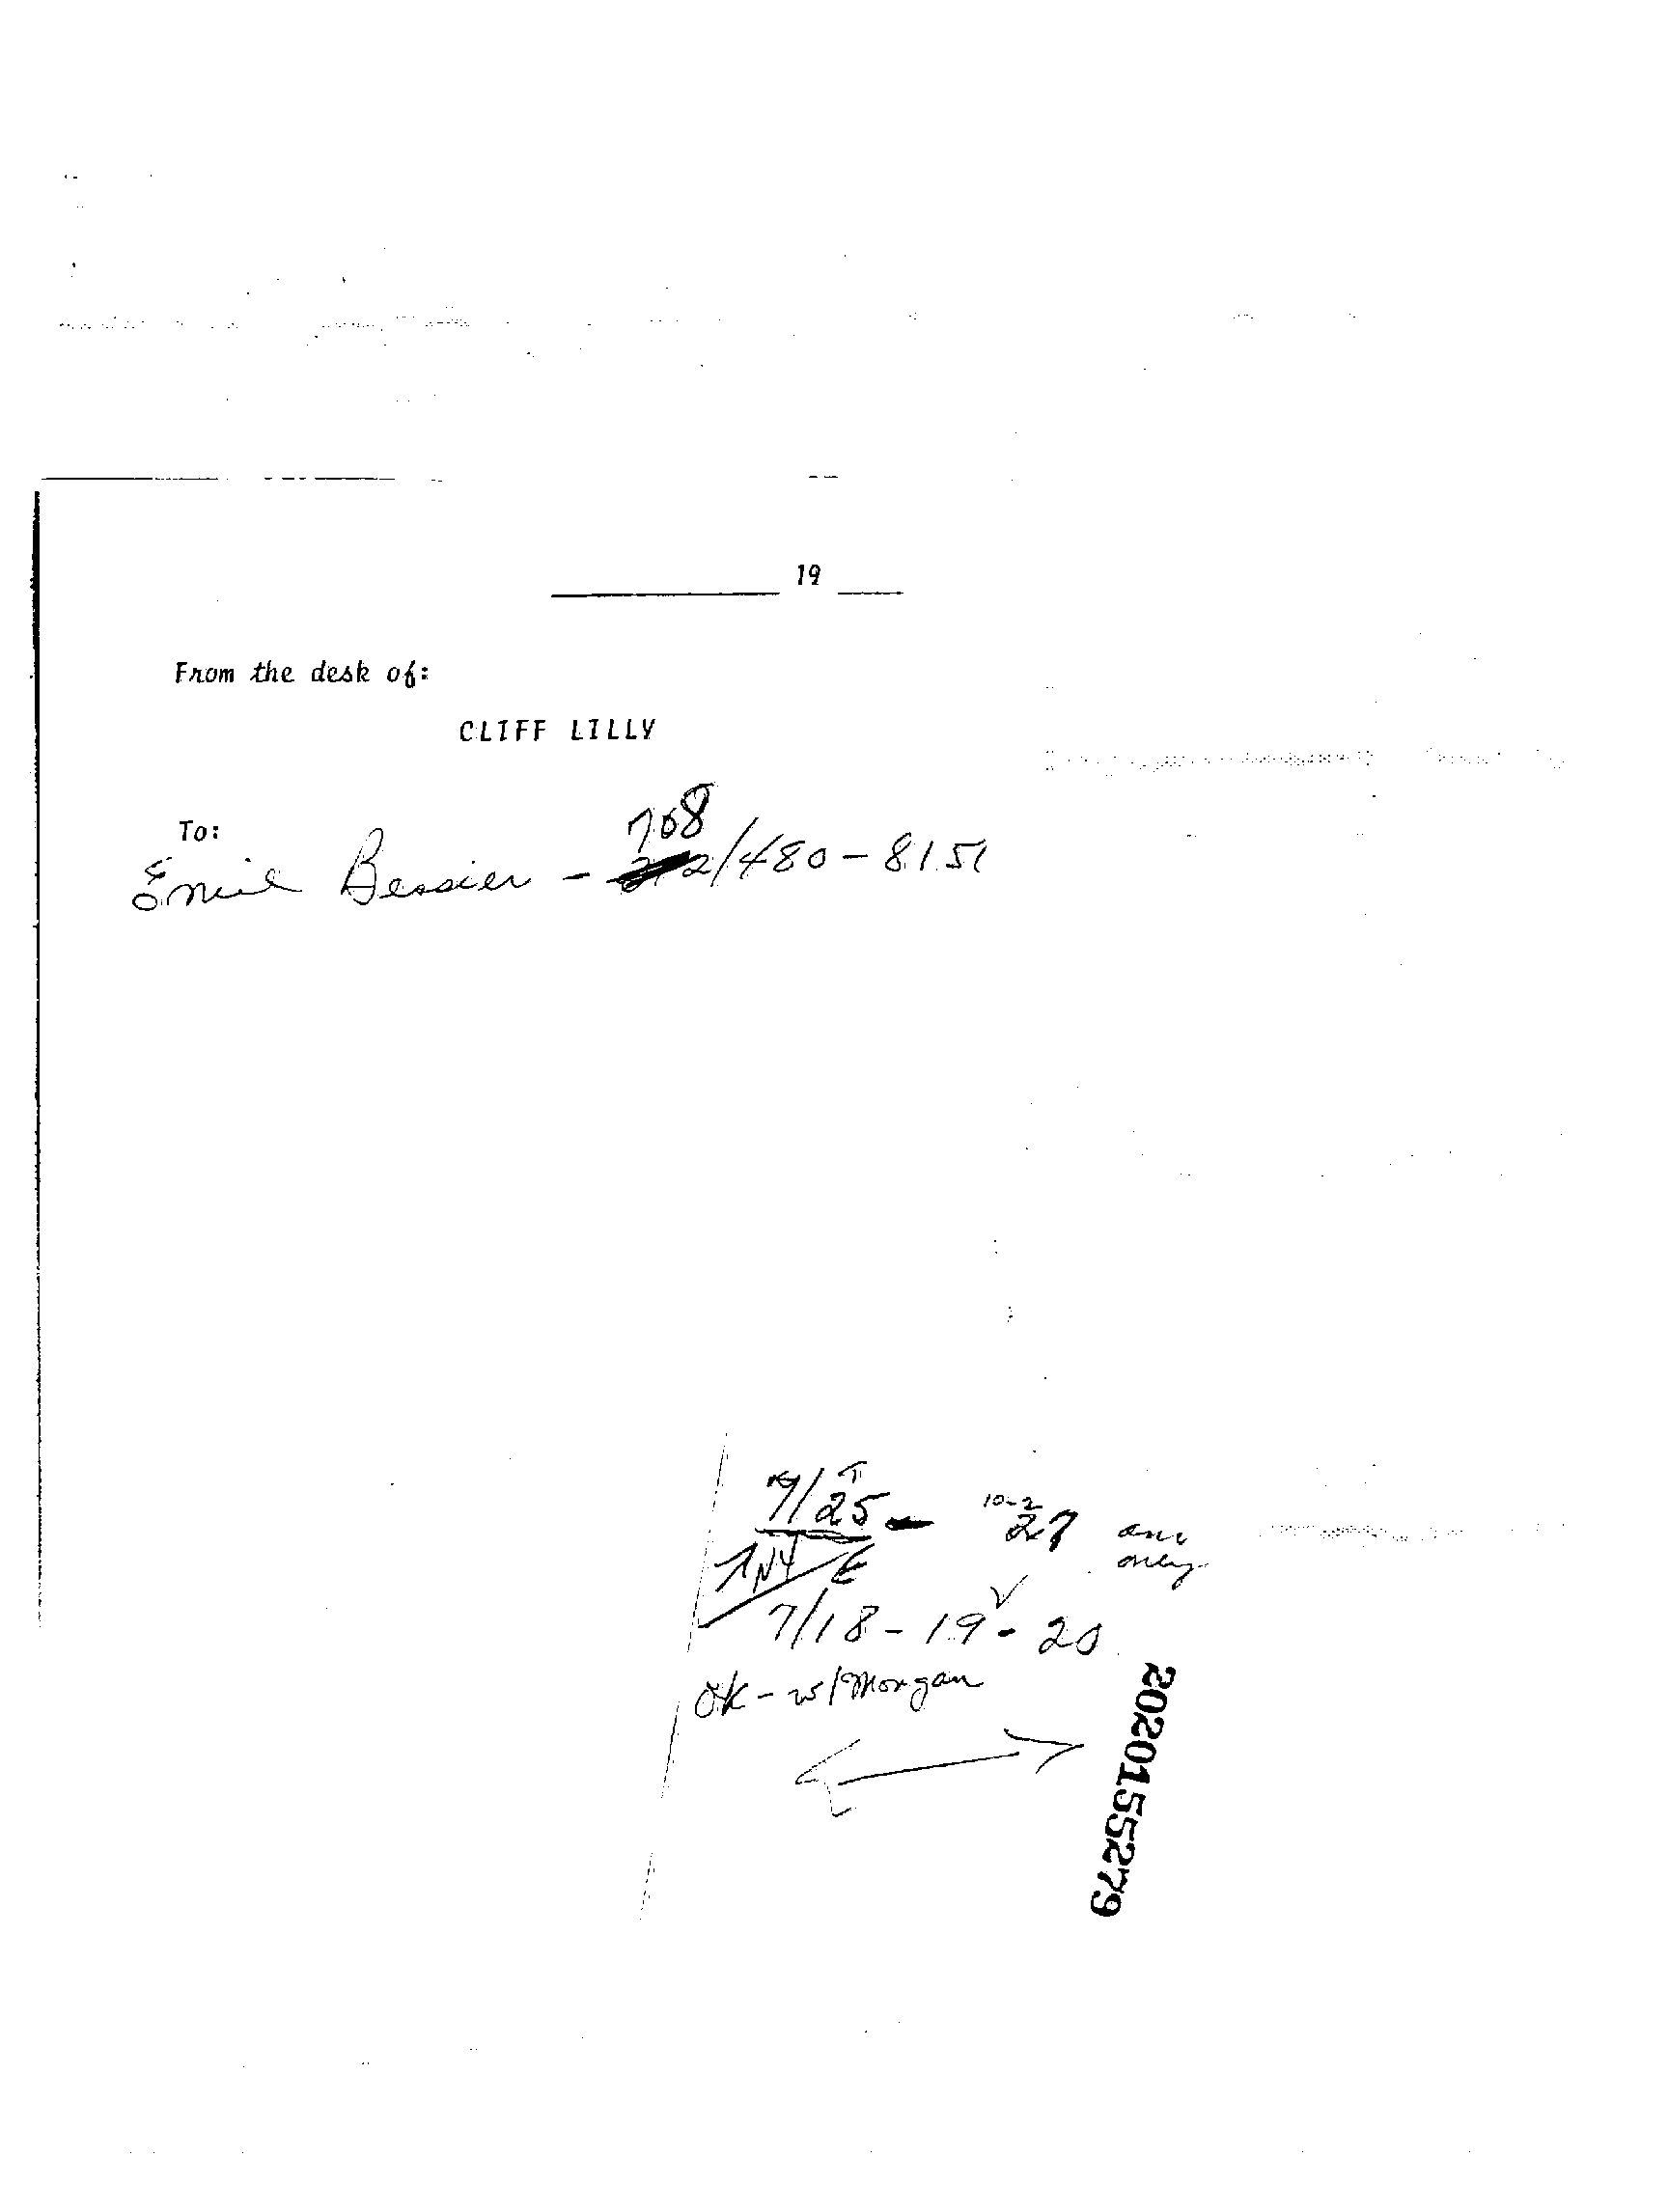 19
From the desk of:
CLIFF LILLY
To:
708
Emil Bessier - 2/480-8151
7/25 - 10-2 27 am only
7/18 - 19 - 20
OK - w/Morgan
2020155279